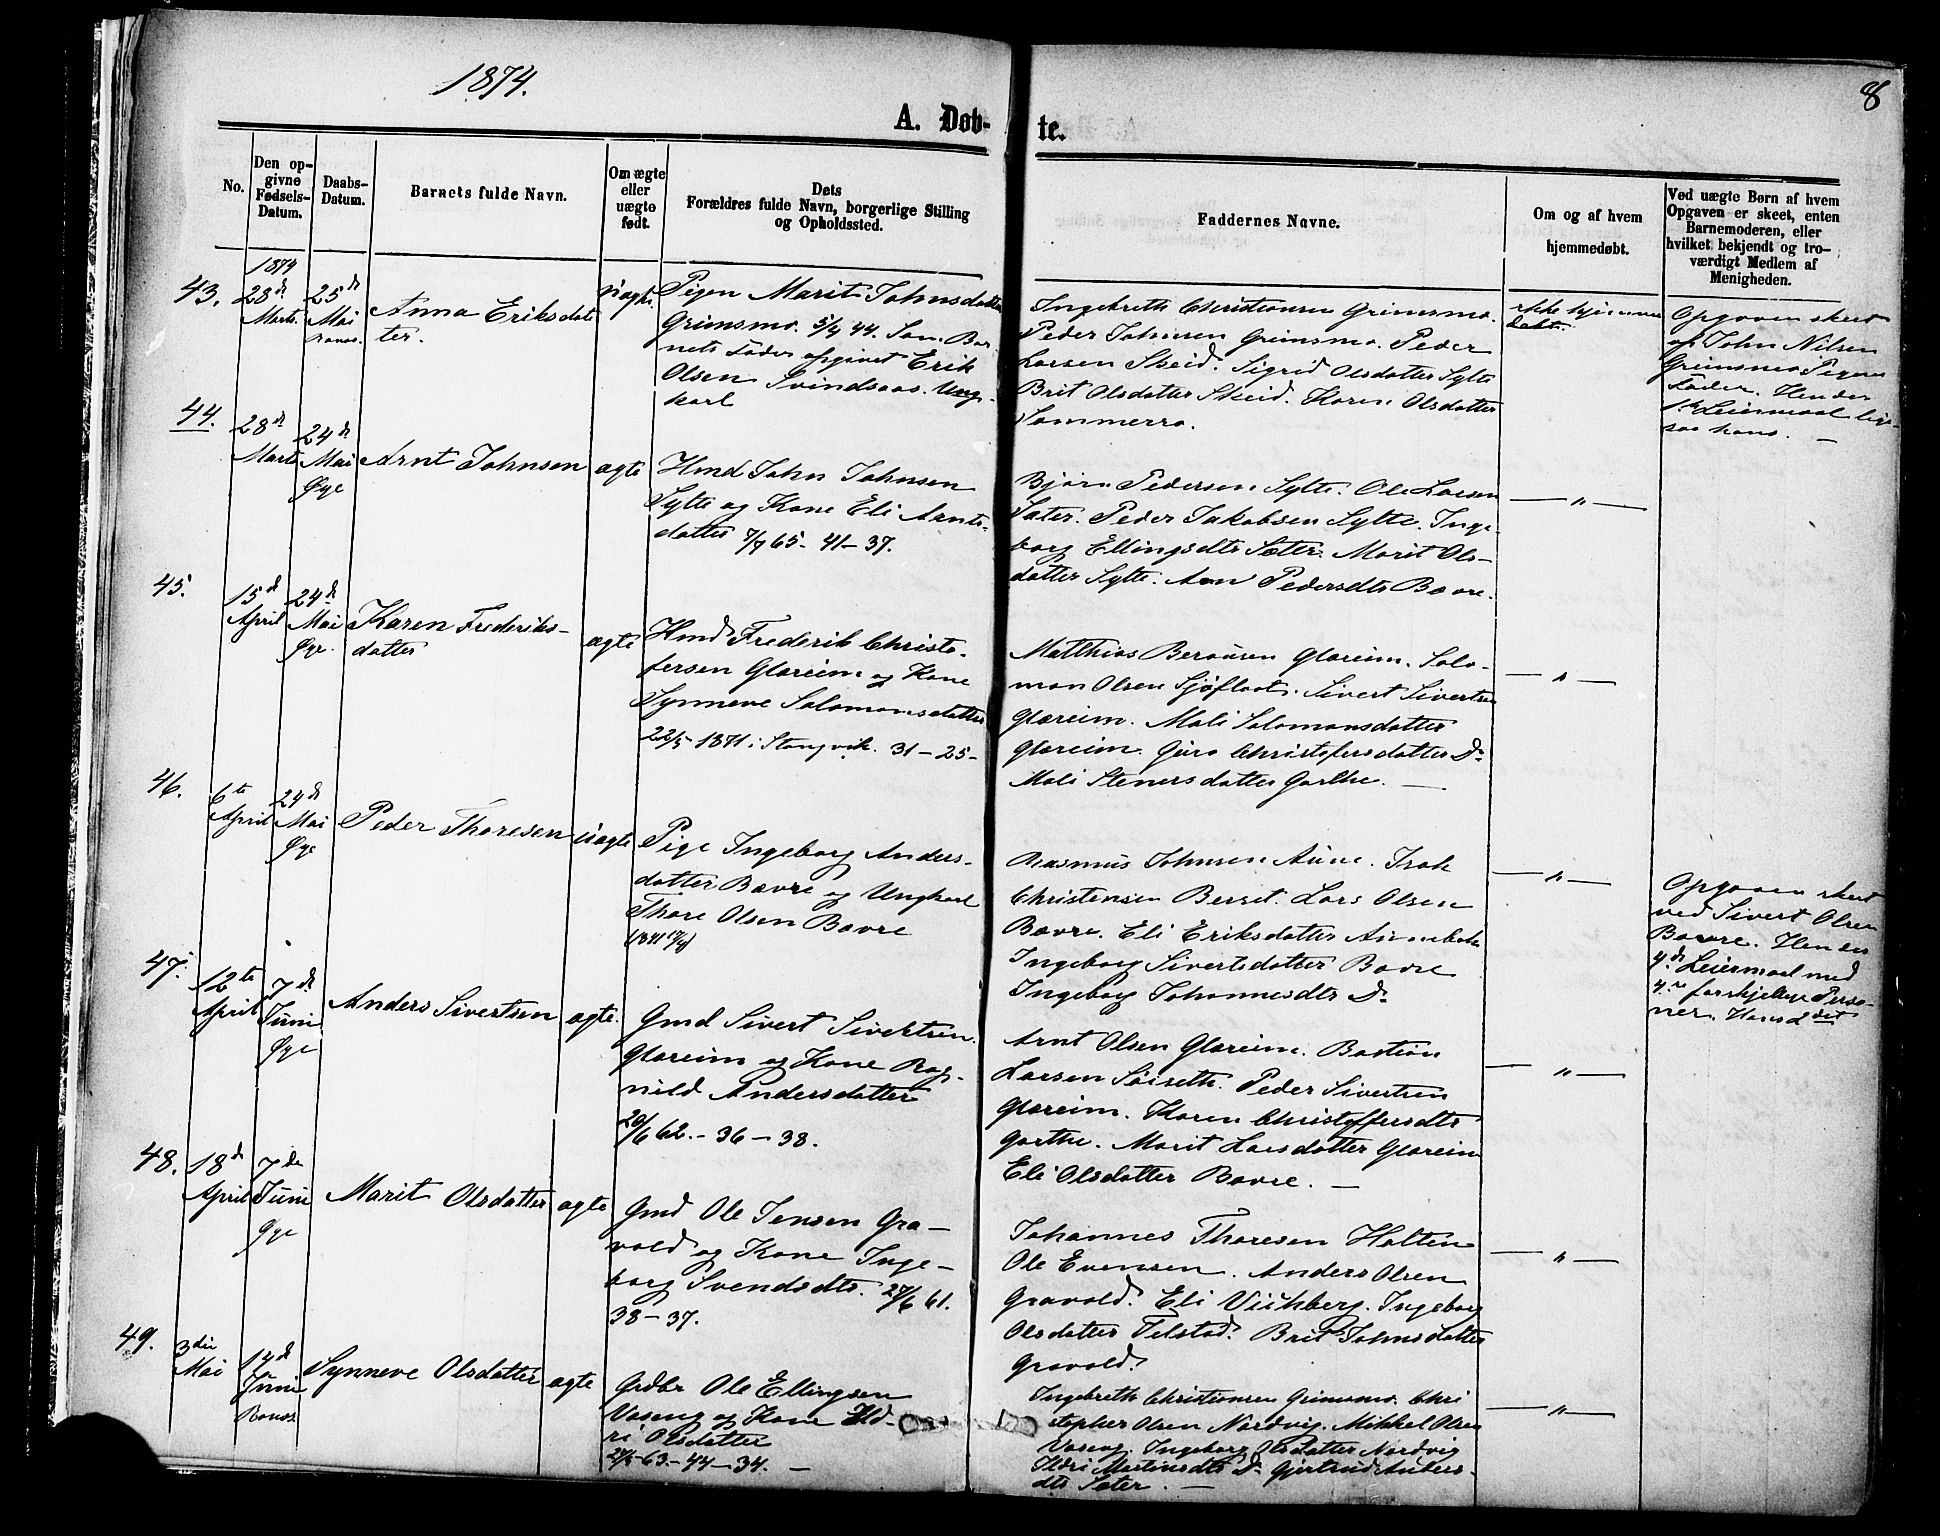 1874.
8
A. Døb-
te.
No.
Den op-
givne
Fødsels-
Datum.
Daabs-
Datum.
Barnets fulde Navn.
Om ægte
eller
uægte
født.
Dets
Forældres fulde Navn, borgerlige Stilling
og Opholdssted.
Faddernes Navne.
Om og af hvem
hjemmedøbt.
Ved uægte Børn af hvem
Opgaven er skeet, enten
Barnemoderen, eller
hvilket bekjendt og tro-
værdigt Medlem af
Menigheden.
43.
1874
28de
Marts
25de
Mai
Ranæs
Anna Eriksdat
ter.
uægte
Pigen Marit Johnsdatter
Grimsmo. 5/4 44. Som Bar
nets Fader opgivet Erik
Olsen Svindsaas. Ung-
karl
Ingebreth Christiansen Grimsmo.
Peder Johnsen Grimsmo. Peder
Larsen Skeid. Sigrid Olsdatter Sylte
Brit Olsdatter Skeid. Karen Olsdatter
Sommerro.
ikke hjemme
døbt.
Opgaven skeet
af John Nilsen
Grimsmo Pigens
Fader. Hendes
1ste Leiermaal lige-
saa hans. —
44.
28de
Marts
24de
Mai
Øye
Arnt Johnsen
ægte
Hmd John Johnsen
Sylte og Kone Eli Arnts-
datter 7/7 65 - 41 - 37.
Bjørn Pedersen Sylte. Ole Larsen
Sæter. Peder Jakobsen Sylte. Inge-
borg Ellingsdtr Sæter. Marit Ols-
datter Sylte. Ann Pedersdtr Bævre.
— " —
45.
15de
April
24de
Mai
Øye.
Karen Frederiks-
datter
ægte
Hmd Frederik Christo-
fersen Glæreim og Kone
Synneve Salomonsdatter
22/5 1871 i Stangvik. 31 - 25 -
Matthias Berdusen Glæreim. Salo-
mon Olsen Sjøflaat. Sivert Sivertsen
Glæreim. Mali Salomonsdatter
Glæreim. Guro Christofersdatter Do
Mali Stenersdatter Garthe. —
— " —
46.
6te
April
24de
Mai
Øye
Peder Thoresen
uægte
Pige Ingeborg Anders-
datter Bævre og Ungkarl
Thore Olsen Bævre
Rasmus Johnsen Aune. Isak
Christensen Berset. Lars Olsen
Bævre. Eli Eriksdatter Aunebak
Ingeborg Sivertsdatter Bævre
Ingeborg Johannesdtr Do
— " —
Opgaven skeet
ved Sivert Olsen
Bævre. Hendes
4de Leiermaal med
4re forskjellige Perso-
ner. Hans 2det
47.
12te
April
7de
Juni
Øye
Anders Sivertsen
ægte.
Gmd Sivert Sivertsen
Glæreim og Kone Rag-
nild Andersdatter
20/6 62. - 36 - 38.
Arnt Olsen Glæreim. Bastian
Larsen Sæiseth. Peder Sivertsen
Glæreim. Karen Christoffersdtr
Garthe. Marit Larsdatter Glæreim
Eli Olsdatter Bævre. —
— " —
48.
18de
April
7de
Juni
Øye
Marit Olsdatter
ægte
Gmd Ole Jensen Gra-
vold og Kone Inge-
borg Svendsdtr. 27/6 61.
38 - 37.
Johannes Thoresen Holten
Ole Evensen. Anders Olsen
Gravold. Eli Vichberg. Ingeborg
Olsdatter Telstad. Brit Johnsdatter
Gravold.
— " —
49.
3die
Mai
14de
Juni
Ranæs
Synneve Olsdatter
ægte
Grdbr Ole Ellingsen
Vaseng og Kone Ild-
ri Olsdatter
63. - 44 - 34. —
Ingebreth Christiansen Grimsmo. Chri
stopher Olsen Nordvig. Mikkel Olsen
Vaseng. Ingeborg Olsdatter Nordvig
Ildri Martinsdtr Do Gjertrud Anders-
dtr Sæter. —
— " —